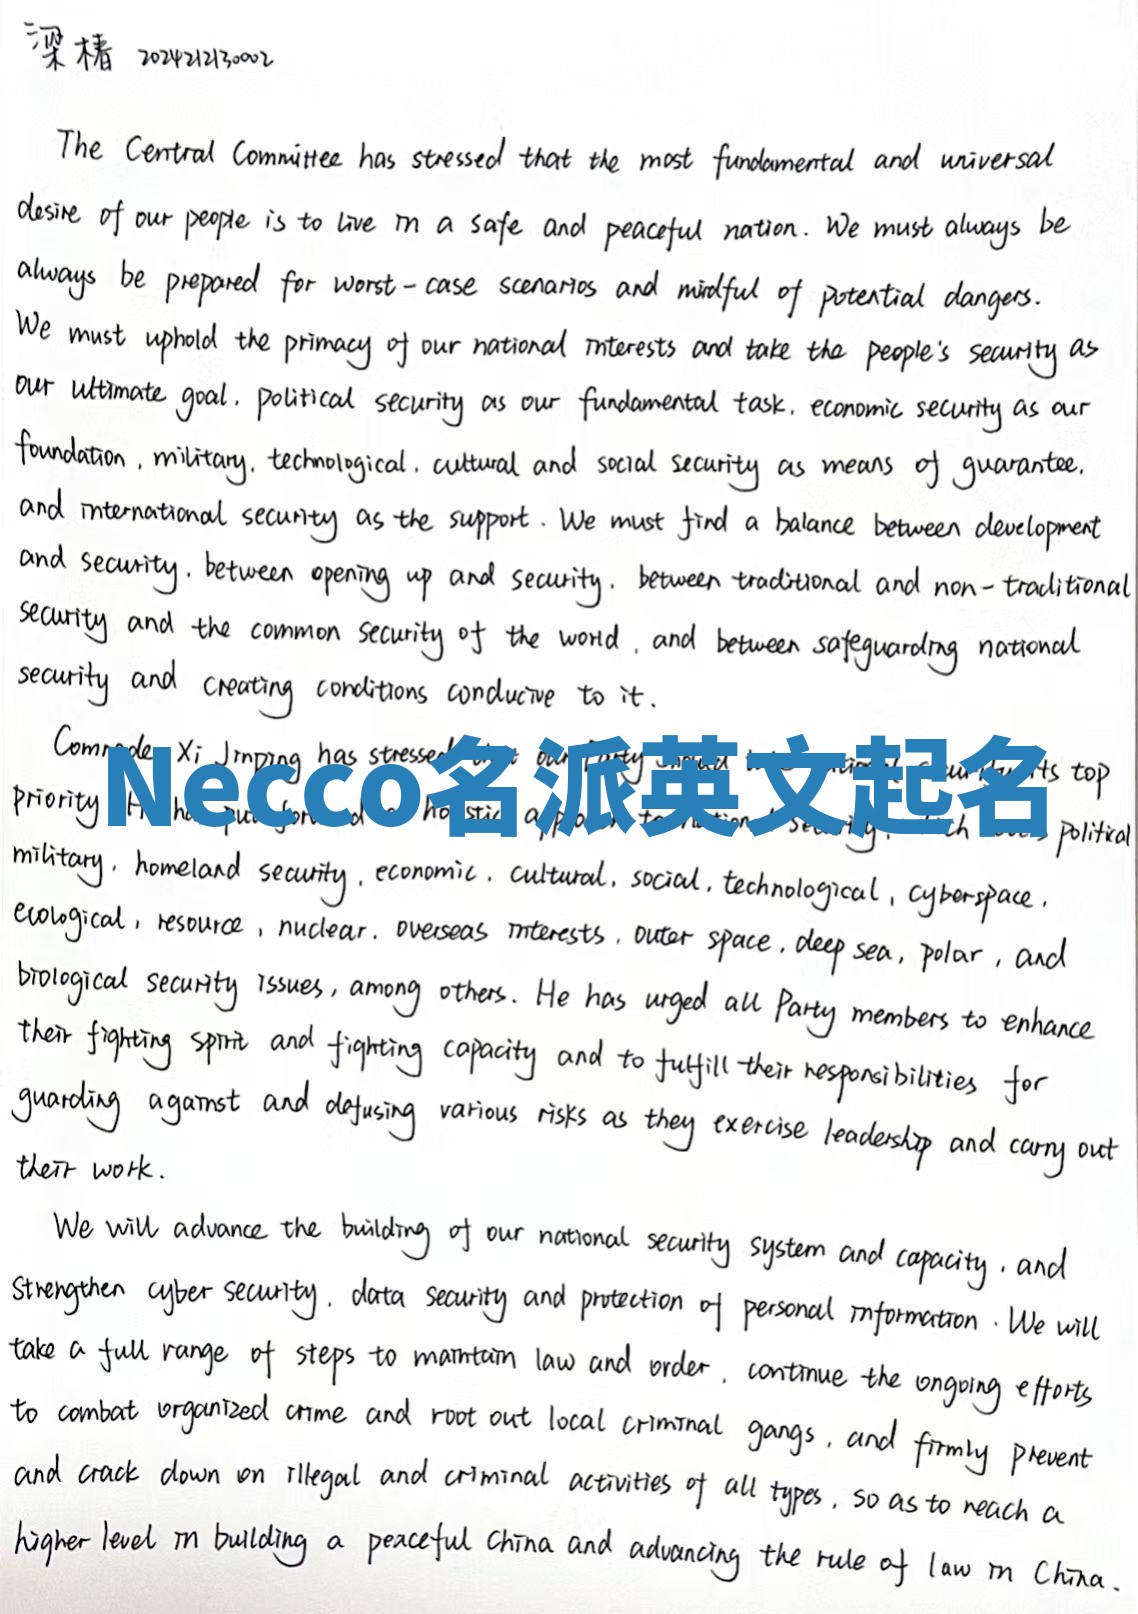 梁椿 2024212130002
The Central Committee has stressed that the most fundamental and universal
desire of our people is to live in a safe and peaceful nation. We must always be
always be prepared for worst-case scenarios and mindful of potential dangers.
We must uphold the primacy of our national interests and take the people's security as
our ultimate goal, political security as our fundamental task, economic security as our
foundation, military, technological, cultural and social security as means of guarantee,
and international security as the support. We must find a balance between development
and security, between opening up and security, between traditional and non-traditional
security and the common security of the world, and between safeguarding national
security and creating conditions conducive to it.
Comrade Xi Jinping has stressed our Party top
Necco名派英文起名
priority political
military, homeland security, economic, cultural, social, technological, cyberspace,
ecological, resource, nuclear, overseas interests, outer space, deep sea, polar, and
biological security issues, among others. He has urged all Party members to enhance
their fighting spirit and fighting capacity and to fulfill their responsibilities for
guarding against and defusing various risks as they exercise leadership and carry out
their work.
We will advance the building of our national security system and capacity, and
strengthen cyber security, data security and protection of personal information. We will
take a full range of steps to maintain law and order, continue the ongoing efforts
to combat organized crime and root out local criminal gangs, and firmly prevent
and crack down on illegal and criminal activities of all types, so as to reach a
higher level in building a peaceful China and advancing the rule of law in China.